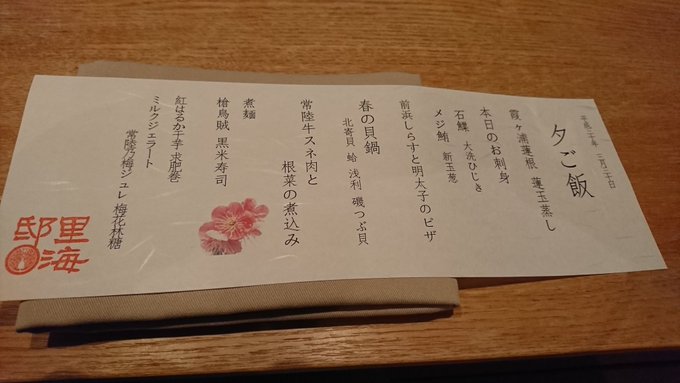 夕ご飯
平成三十年 二月二十日
霞ヶ浦蓮根 蓮玉蒸し
本日のお刺身
石鰈 大洗ひじき
メジ鮪 新玉葱
前浜しらすと明太子のピザ
春の貝鍋
北寄貝 蛤 浅利 磯つぶ貝
常陸牛スネ肉と
根菜の煮込み
煮麺
槍烏賊 黒米寿司
紅はるか干芋 求肥巻
ミルクジェラート
常陸乃梅ジュレ 梅花林糖
里海邸